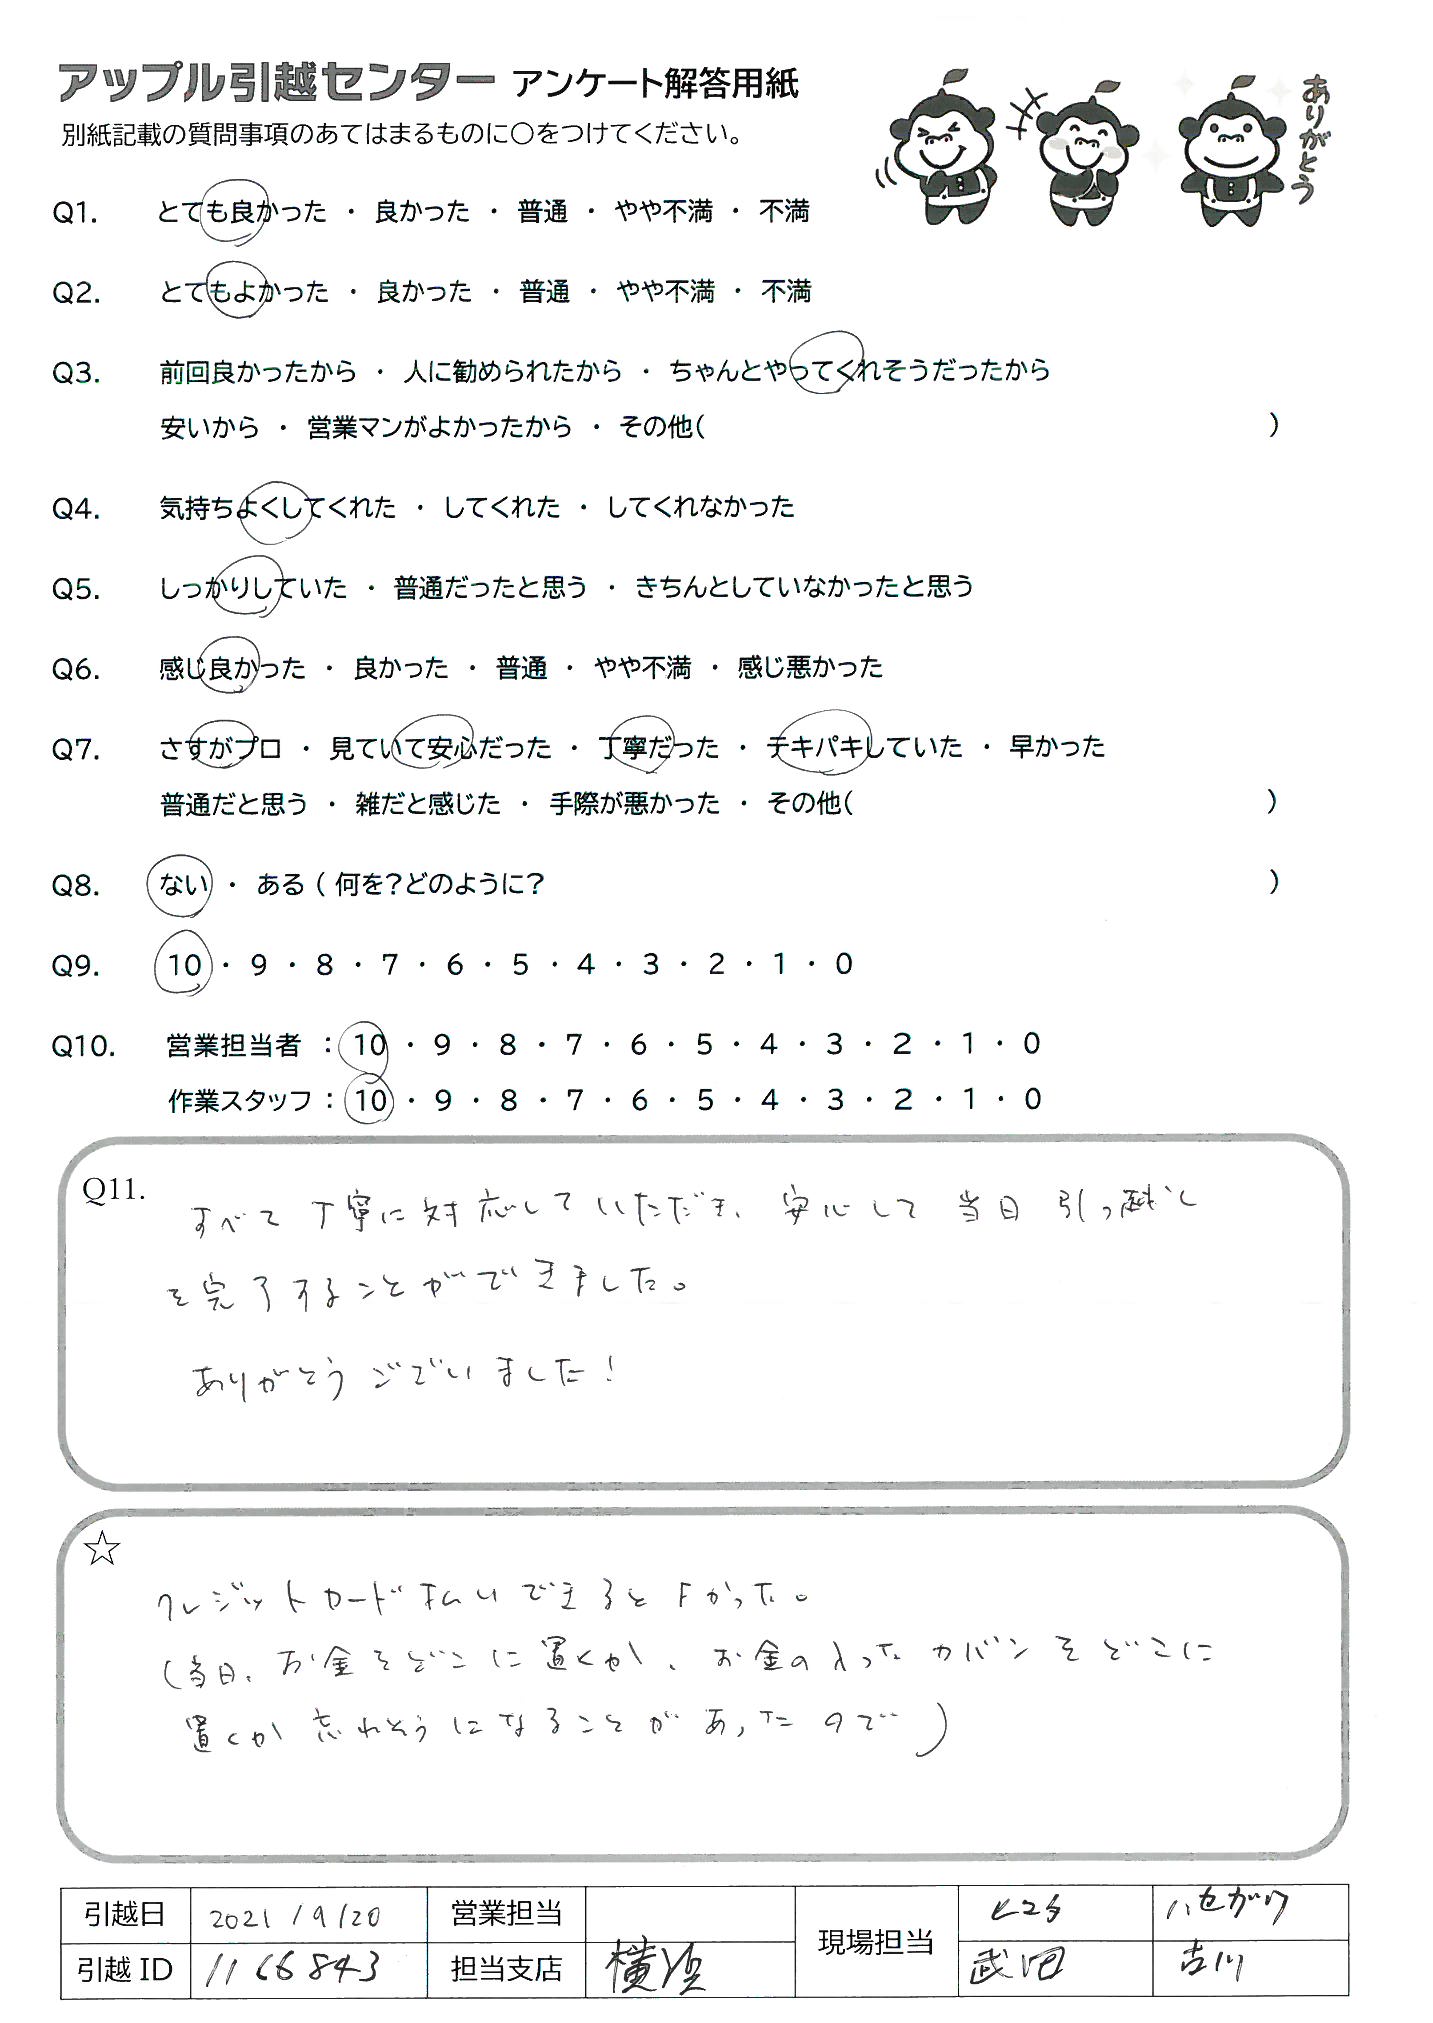 アップル引越センター アンケート解答用紙
ありがとう
別紙記載の質問事項のあてはまるものに○をつけてください。
Q1. とても良かった ・ 良かった ・ 普通 ・ やや不満 ・ 不満
Q2. とてもよかった ・ 良かった ・ 普通 ・ やや不満 ・ 不満
Q3. 前回良かったから ・ 人に勧められたから ・ ちゃんとやってくれそうだったから
安いから ・ 営業マンがよかったから ・ その他( )
Q4. 気持ちよくしてくれた ・ してくれた ・ してくれなかった
Q5. しっかりしていた ・ 普通だったと思う ・ きちんとしていなかったと思う
Q6. 感じ良かった ・ 良かった ・ 普通 ・ やや不満 ・ 感じ悪かった
Q7. さすがプロ ・ 見ていて安心だった ・ 丁寧だった ・ テキパキしていた ・ 早かった
普通だと思う ・ 雑だと感じた ・ 手際が悪かった ・ その他( )
Q8. ない ・ ある ( 何を?どのように? )
Q9. 10 ・ 9 ・ 8 ・ 7 ・ 6 ・ 5 ・ 4 ・ 3 ・ 2 ・ 1 ・ 0
Q10. 営業担当者 : 10 ・ 9 ・ 8 ・ 7 ・ 6 ・ 5 ・ 4 ・ 3 ・ 2 ・ 1 ・ 0
作業スタッフ : 10 ・ 9 ・ 8 ・ 7 ・ 6 ・ 5 ・ 4 ・ 3 ・ 2 ・ 1 ・ 0
Q11. すべて丁寧に対応していただき、安心して当日引っ越し
を完了することができました。
ありがとうございました!
☆
クレジットカード払いできるとよかった。
(当日、お金をどこに置くか、お金の入ったカバンをどこに
置くか忘れそうになることがあったので)
引越日 2021/9/20 営業担当 現場担当 ハセガワ
引越ID 1166843 担当支店 横浜 武田 古川